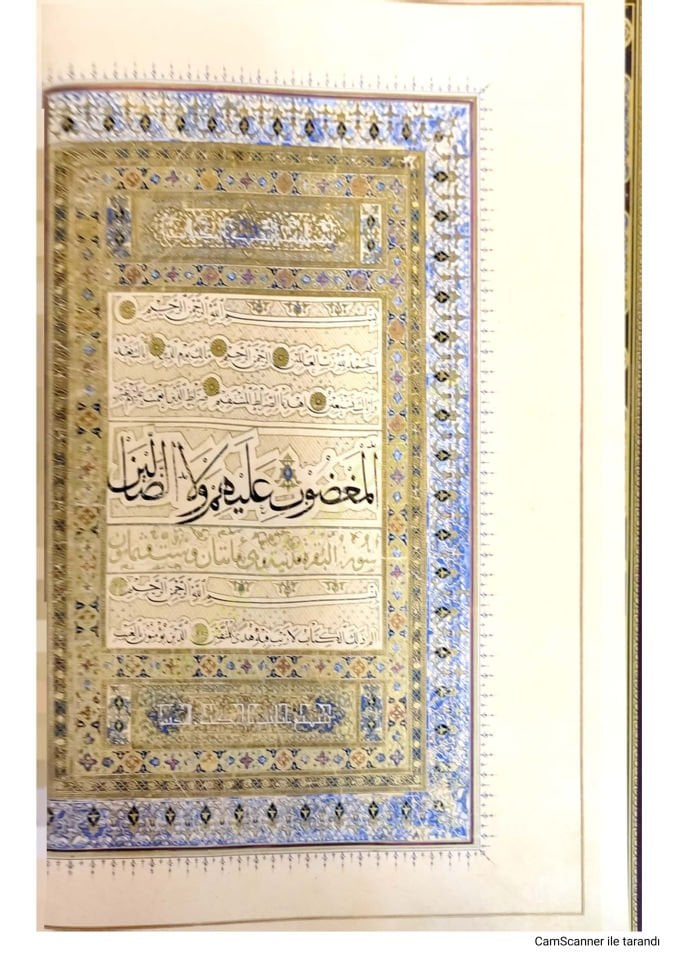 بسم الله الرحمن الرحيم
الحمد لله رب العالمين الرحمن الرحيم مالك يوم الدين اياك نعبد
واياك نستعين اهدنا الصراط المستقيم صراط الذين انعمت عليهم غير
المغضوب عليهم ولا الضالين
سورة البقرة مدنية وهي مائتان وست وثمانون
بسم الله الرحمن الرحيم
الم ذلك الكتاب لا ريب فيه هدى للمتقين الذين يؤمنون بالغيب
CamScanner ile tarandı